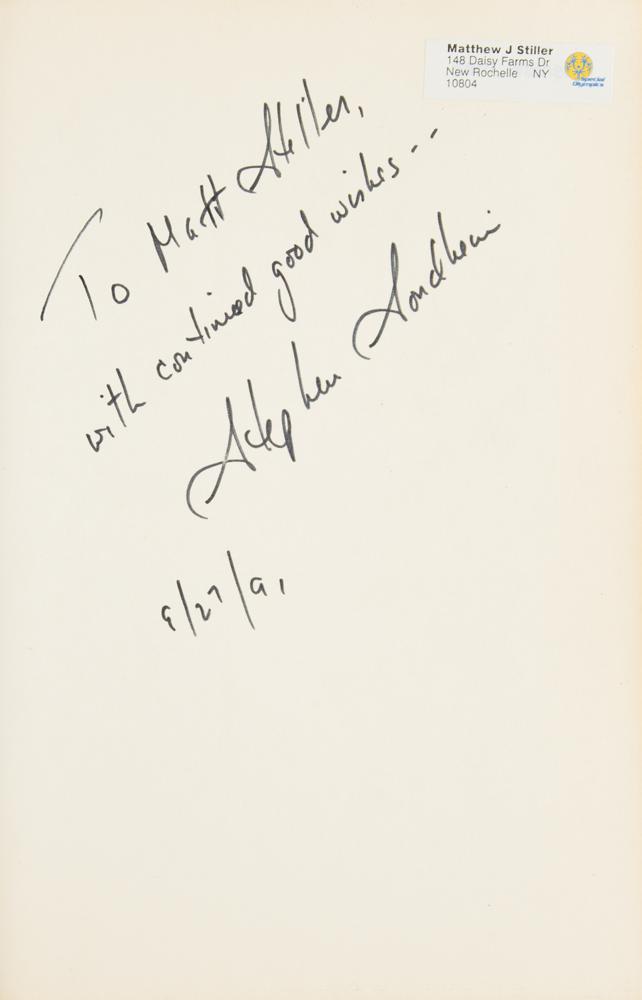 Matthew J Stiller
148 Daisy Farms Dr
New Rochelle NY
10804
Special
Olympics
To Matt Stiller,
with continued good wishes --
Stephen Sondheim
9/27/91